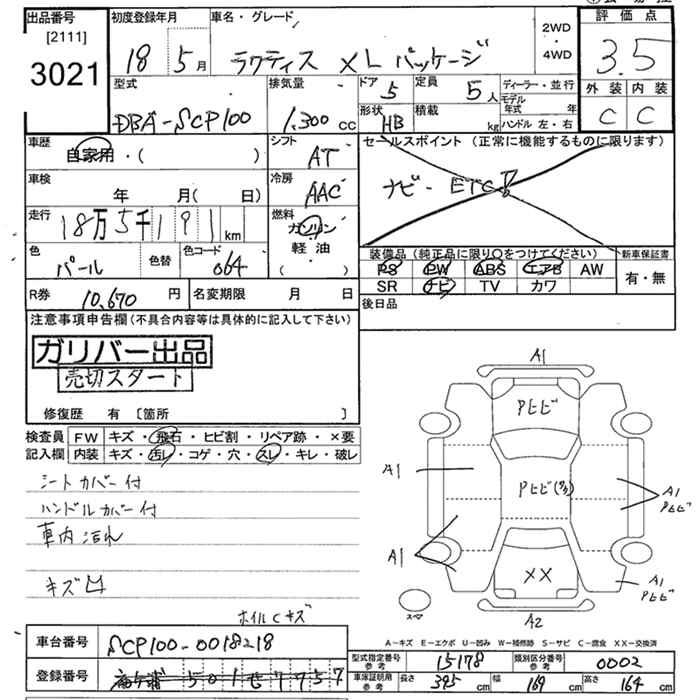 出品番号
[2111]
3021
初度登録年月
18 5月
車名・グレード
ラクティス XL パッケージ
2WD
・
4WD
評価点
3.5
外装 内装
C C
型式
DBA-SCP100
排気量
1.300cc
ドア 5
定員 5人
形状 HB
積載 kg
ディーラー・並行
モデル年式 年
ハンドル 左・右
車歴
自家用・( )
シフト
AT
セールスポイント (正常に機能するものに限ります)
ナビ・ETC
車検
年 月( 日)
冷房
AAC
走行
18万5千191km
燃料
ガソリン
軽・油
( )
色
パール
色替
色コード
064
装備品 (純正品に限り○をつけてください)
PS PW ABS エアB AW
SR ナビ TV カワ
新車保証書
有・無
R券 10,670円
名変期限 月 日
後日品
注意事項申告欄(不具合内容等は具体的に記入して下さい)
ガリバー出品
売切スタート
修復歴 有 [箇所 ]
検査員記入欄
FW キズ・飛石・ヒビ割・リペア跡・×要
内装 キズ・汚レ・コゲ・穴・スレ・キレ・破レ
シートカバー付
ハンドルカバー付
車内汚れ
キズ凹
ホイルCキズ
A1
Pヒビ
A1
Pヒビ
A1
Pヒビ
A1
A1
Pヒビ
XX
スペア
A2
A-キズ E-エクボ U-凹み W-補修跡 S-サビ C-腐食 XX-交換済
車台番号 SCP100-0018218
登録番号
型式指定番号 参考 15178
類別区分番号 参考 0002
車庫証明用 参考 長さ 395cm 幅 169cm 高さ 164cm